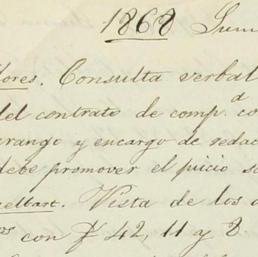 1868 Jun
lores. Consulta verbal
del contrato de comp.ª co
rango y encargo de redac
debe promover el juicio so
elbart. Vista de los a
con ₣ 42, 11 y 8